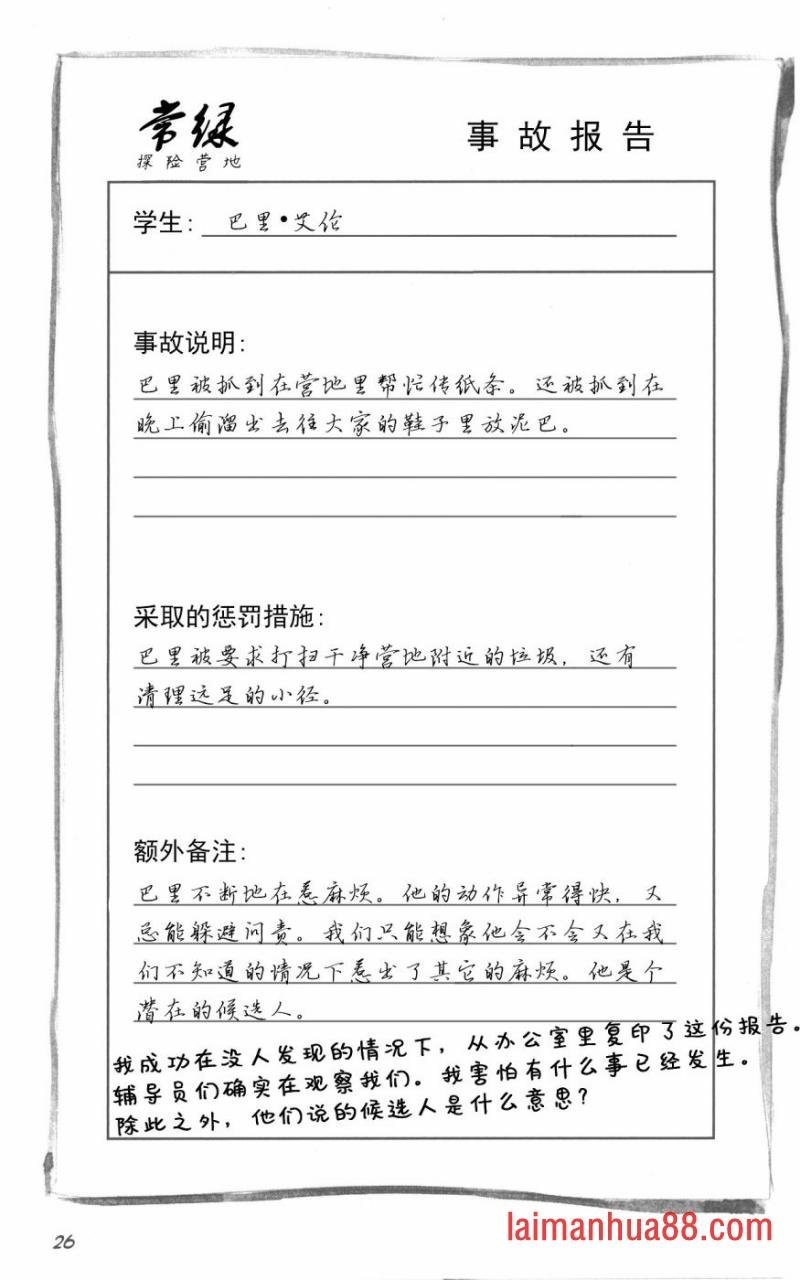 常绿
探险营地
事故报告
学生：巴里·艾伦
事故说明：
巴里被抓到在营地里帮忙传纸条。还被抓到在
晚上偷溜出去往大家的鞋子里放泥巴。
采取的惩罚措施：
巴里被要求打扫干净营地附近的垃圾，还有
清理远足的小径。
额外备注：
巴里不断地在惹麻烦。他的动作异常得快，又
总能躲避问责。我们只能想象他会不会又在我
们不知道的情况下惹出了其它的麻烦。他是个
潜在的候选人。
我成功在没人发现的情况下，从办公室里复印了这份报告。
辅导员们确实在观察我们。我害怕有什么事已经发生。
除此之外，他们说的候选人是什么意思？
26
laimanhua88.com